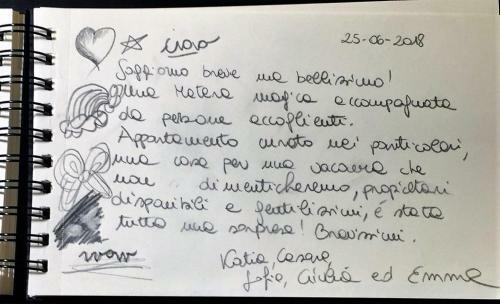 ciao
25-06-2018
Soggiorno breve ma bellissimo!
Una Matera magica accompagnata
da persone accoglienti.
Appartamento curato nei particolari,
una casa per una vacanza che
non dimenticheremo, proprietari
disponibili e gentilissimi, è stata
tutta una sorpresa! Bravissimi.
wow
Katia, Cesare,
Sofia, ed Emma